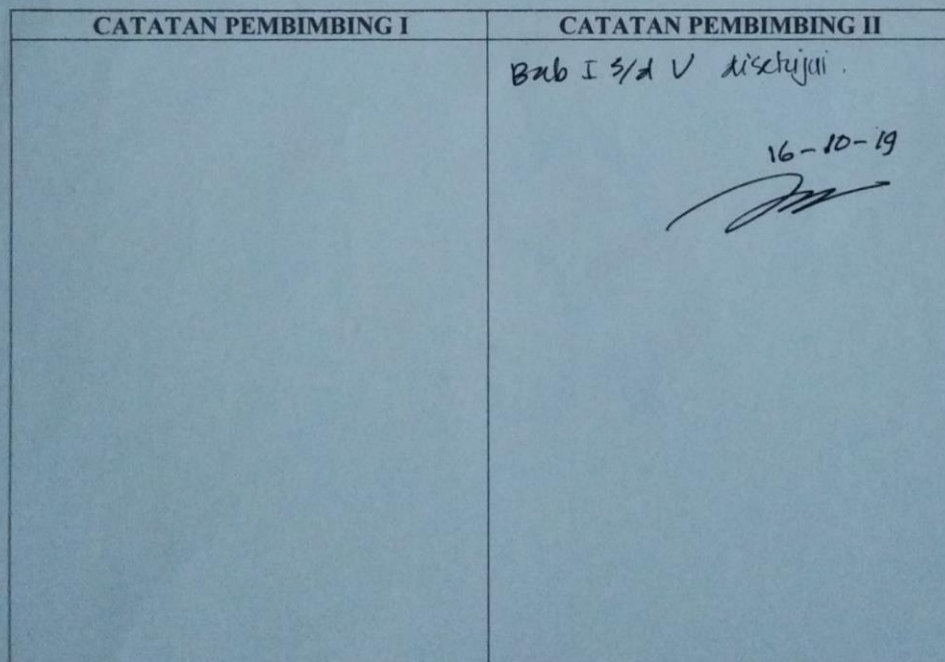 CATATAN PEMBIMBING I
CATATAN PEMBIMBING II
Bab I s/d V disetujui.
16-10-19